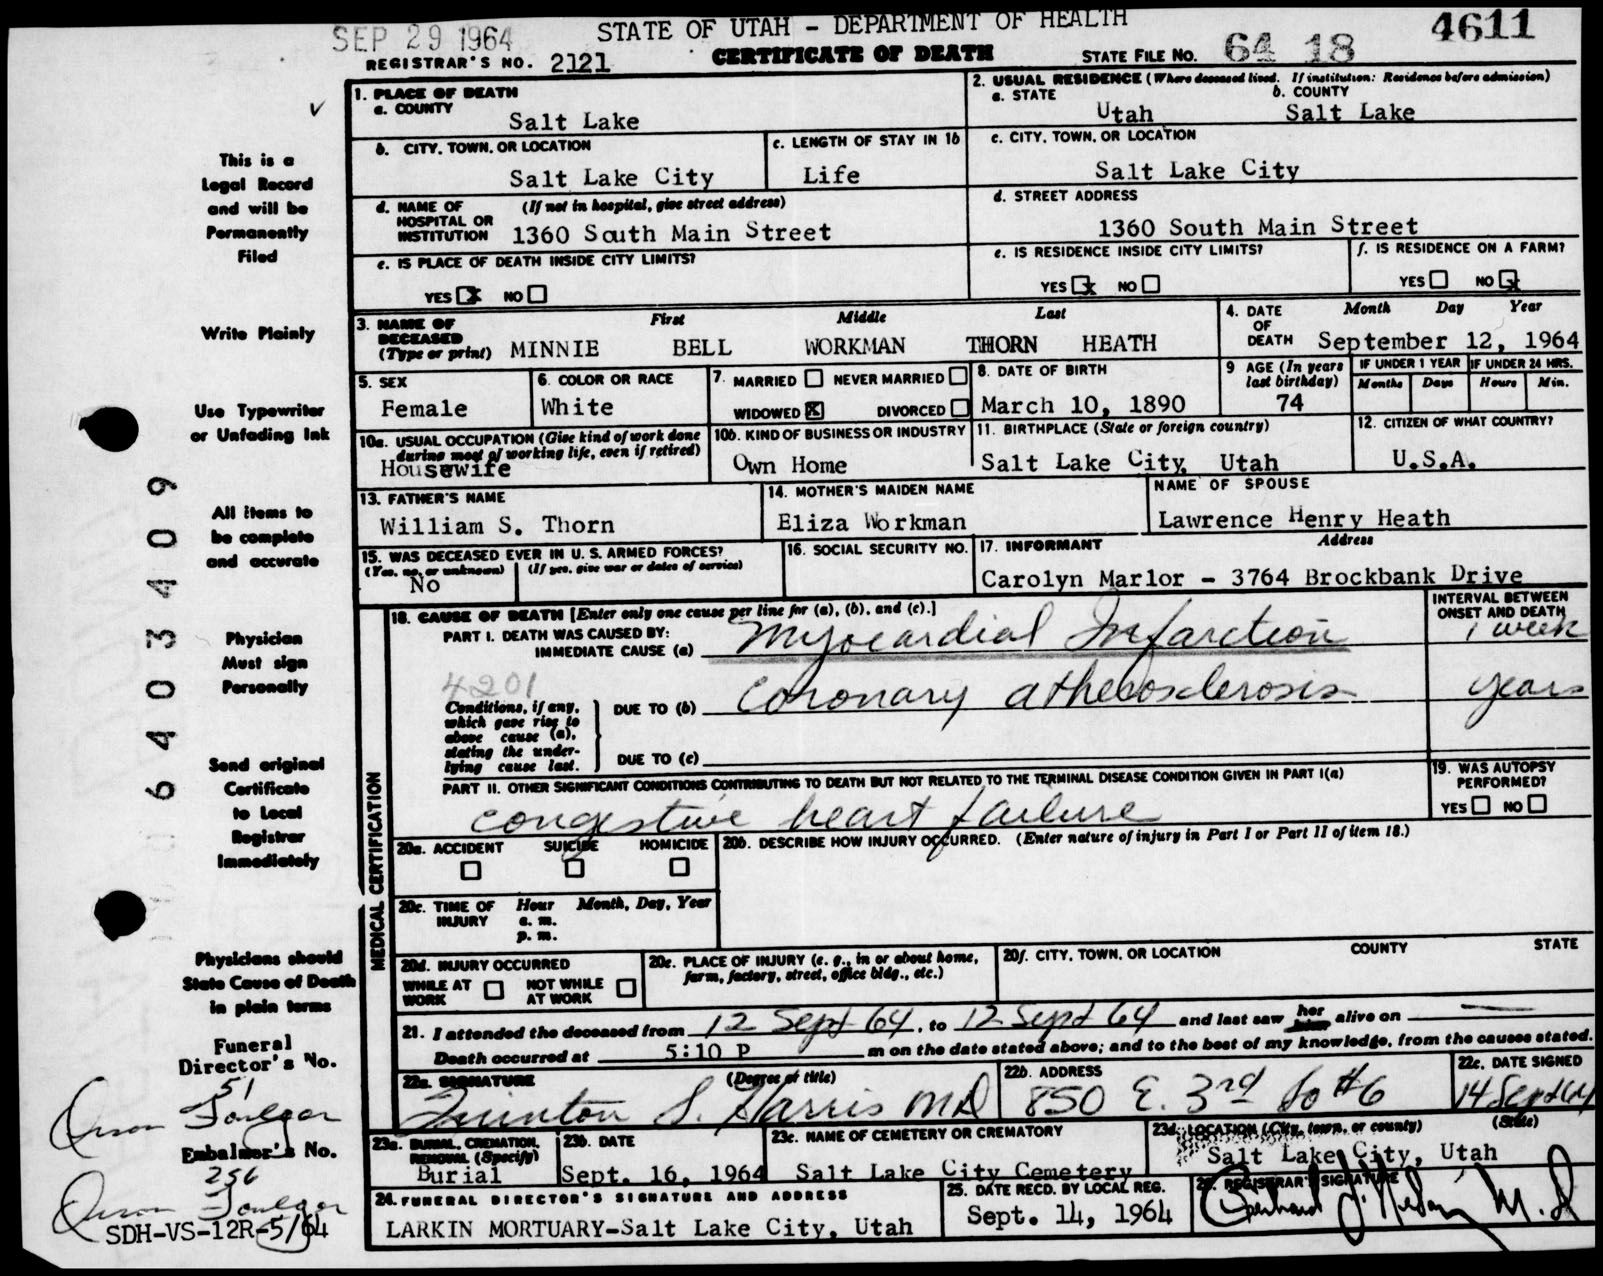 SEP 29 1964
STATE OF UTAH - DEPARTMENT OF HEALTH
4611
REGISTRAR'S NO. 2121
CERTIFICATE OF DEATH
STATE FILE NO. 64 18
1. PLACE OF DEATH
a. COUNTY
Salt Lake
2. USUAL RESIDENCE (Where deceased lived. If institution: Residence before admission)
a. STATE
Utah
b. COUNTY
Salt Lake
b. CITY, TOWN, OR LOCATION
Salt Lake City
c. LENGTH OF STAY IN 1b
Life
c. CITY, TOWN, OR LOCATION
Salt Lake City
d. NAME OF HOSPITAL OR INSTITUTION
(If not in hospital, give street address)
1360 South Main Street
d. STREET ADDRESS
1360 South Main Street
e. IS PLACE OF DEATH INSIDE CITY LIMITS?
YES X NO
e. IS RESIDENCE INSIDE CITY LIMITS?
YES X NO
f. IS RESIDENCE ON A FARM?
YES NO X
3. NAME OF DECEASED
(Type or print)
First Middle Last
MINNIE BELL WORKMAN THORN HEATH
4. DATE OF DEATH
Month Day Year
September 12, 1964
5. SEX
Female
6. COLOR OR RACE
White
7. MARRIED NEVER MARRIED
WIDOWED X DIVORCED
8. DATE OF BIRTH
March 10, 1890
9 AGE (In years last birthday)
74
IF UNDER 1 YEAR
Months Days
IF UNDER 24 HRS.
Hours Min.
10a. USUAL OCCUPATION (Give kind of work done during most of working life, even if retired)
Housewife
10b. KIND OF BUSINESS OR INDUSTRY
Own Home
11. BIRTHPLACE (State or foreign country)
Salt Lake City, Utah
12. CITIZEN OF WHAT COUNTRY?
U.S.A.
13. FATHER'S NAME
William S. Thorn
14. MOTHER'S MAIDEN NAME
Eliza Workman
NAME OF SPOUSE
Lawrence Henry Heath
15. WAS DECEASED EVER IN U. S. ARMED FORCES?
(Yes, no, or unknown) (If yes, give war or dates of service)
No
16. SOCIAL SECURITY NO.
17. INFORMANT Address
Carolyn Marlor - 3764 Brockbank Drive
MEDICAL CERTIFICATION
18. CAUSE OF DEATH [Enter only one cause per line for (a), (b), and (c).]
INTERVAL BETWEEN ONSET AND DEATH
PART I. DEATH WAS CAUSED BY:
IMMEDIATE CAUSE (a) Myocardial Infarction 1 week
4201
Conditions, if any, which gave rise to above cause (a), stating the underlying cause last.
DUE TO (b) Coronary atherosclerosis years
DUE TO (c)
PART II. OTHER SIGNIFICANT CONDITIONS CONTRIBUTING TO DEATH BUT NOT RELATED TO THE TERMINAL DISEASE CONDITION GIVEN IN PART I(a)
congestive heart failure
19. WAS AUTOPSY PERFORMED?
YES NO
20a. ACCIDENT SUICIDE HOMICIDE
20b. DESCRIBE HOW INJURY OCCURRED. (Enter nature of injury in Part I or Part II of item 18.)
20c. TIME OF INJURY Hour Month, Day, Year
a. m.
p. m.
20d. INJURY OCCURRED
WHILE AT WORK NOT WHILE AT WORK
20e. PLACE OF INJURY (e. g., in or about home, farm, factory, street, office bldg., etc.)
20f. CITY, TOWN, OR LOCATION COUNTY STATE
21. I attended the deceased from 12 Sept 64, to 12 Sept 64 and last saw her him alive on —
Death occurred at 5:10 P m on the date stated above; and to the best of my knowledge, from the causes stated.
22a. SIGNATURE (Degree or title)
Quinton S. Harris MD
22b. ADDRESS
850 E. 3rd So #6
22c. DATE SIGNED
14 Sept 64
23a. BURIAL, CREMATION, REMOVAL (Specify)
Burial
23b. DATE
Sept. 16, 1964
23c. NAME OF CEMETERY OR CREMATORY
Salt Lake City Cemetery
23d. LOCATION (City, town, or county) (State)
Salt Lake City, Utah
24. FUNERAL DIRECTOR'S SIGNATURE AND ADDRESS
LARKIN MORTUARY-Salt Lake City, Utah
25. DATE RECD. BY LOCAL REG.
Sept. 14, 1964
26. REGISTRAR'S SIGNATURE
M.D
This is a
Legal Record
and will be
Permanently
Filed
Write Plainly
Use Typewriter
or Unfading Ink
All items to
be complete
and accurate
Physician
Must sign
Personally
Send original
Certificate
to Local
Registrar
Immediately
Physicians should
State Cause of Death
in plain terms
Funeral
Director's No.
51
Orson Foulger
Embalmer's No.
256
Orson Foulger
SDH-VS-12R-5/64
6403409